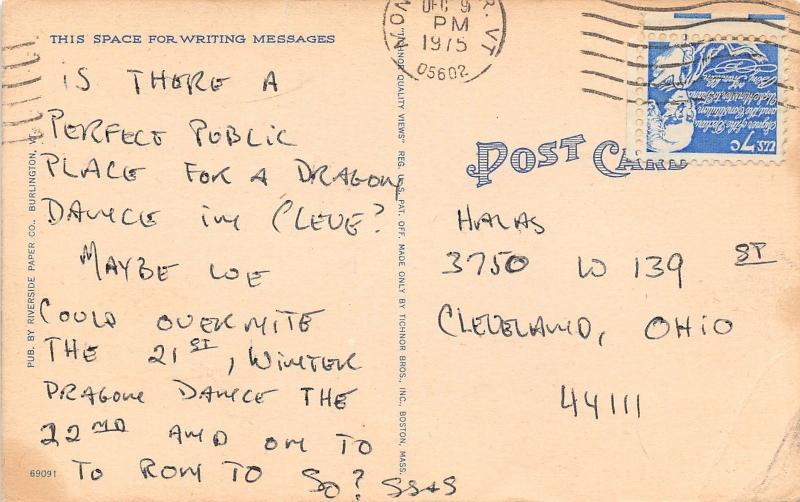 THIS SPACE FOR WRITING MESSAGES
IS THERE A
PERFECT PUBLIC
PLACE FOR A DRAGON
DANCE IN CLEVE?
MAYBE WE
COULD OVERNITE
THE 21ST, WINTER
DRAGON DANCE THE
22ND AND ON TO
TO RONTO SO? SS+S
69091
PUB. BY RIVERSIDE PAPER CO., BURLINGTON, VT.
"TICHNOR QUALITY VIEWS" REG. U. S. PAT. OFF. MADE ONLY BY TICHNOR BROS., INC., BOSTON, MASS.
DEC 9
PM
1975
05602
R. VT
POST CARD
HALAS
3750 W 139 ST
CLEVELAND, OHIO
44111
U.S. 7c
Signer of the Declaration
and the Constitution